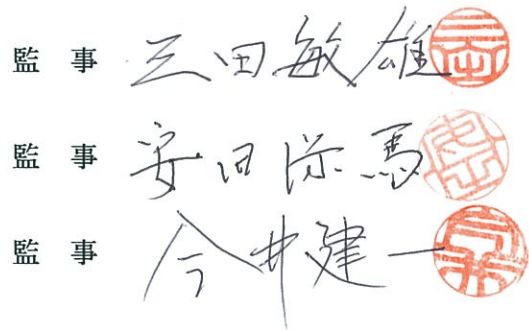 監事 三田敏雄
監事 安田 馬
監事 今井建一